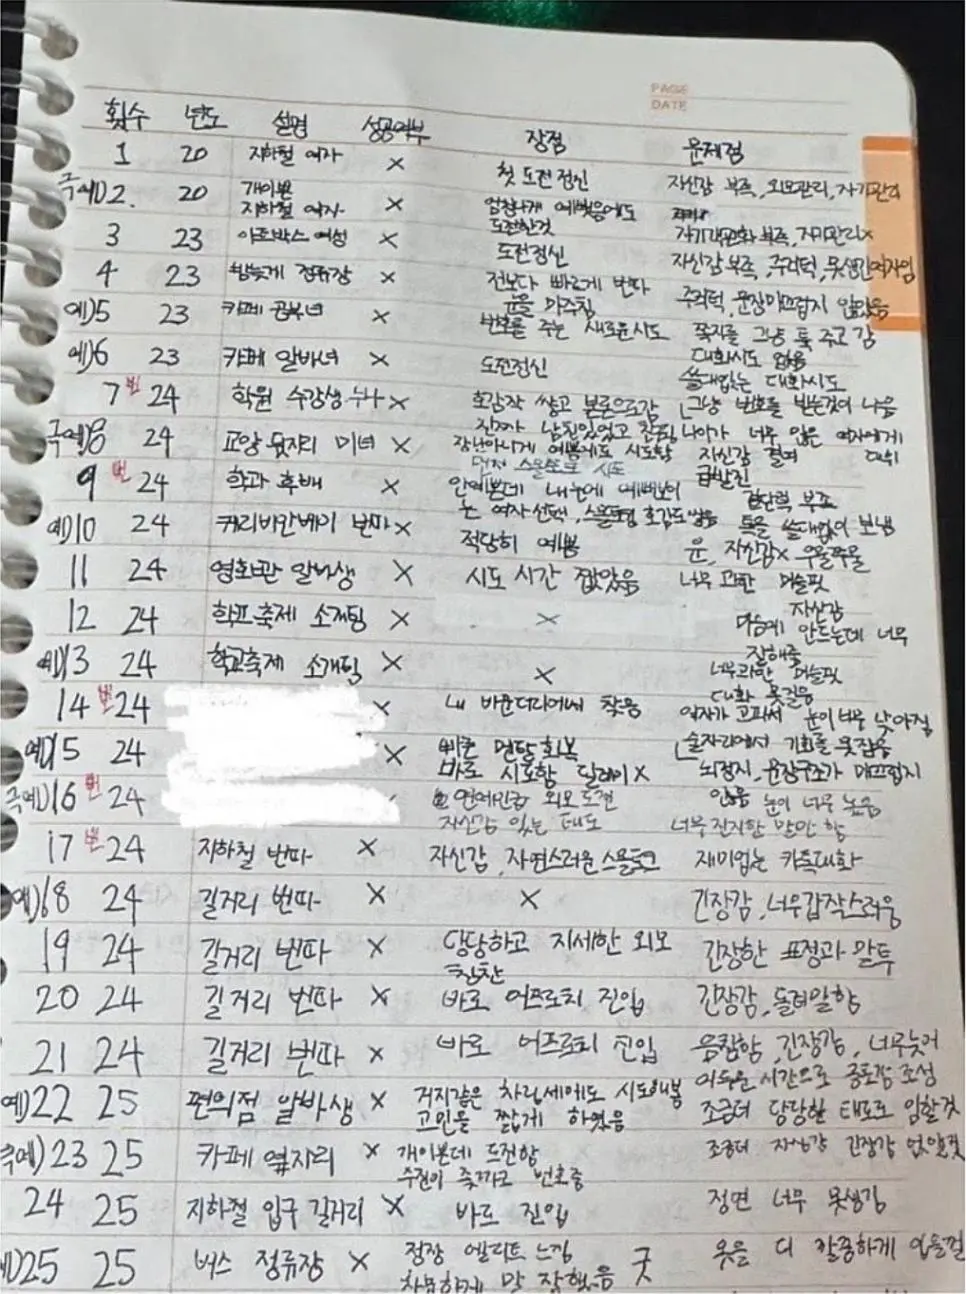 PAGE
DATE
횟수 년도 설명 성공여부 장점 문제점
1 20 지하철 여자 × 첫 도전정신 자신감 부족, 외모관리, 자기관리
극예)2. 20 개이쁜 지하철 여자 × 엄청나게 예뻤음에도 도전한것 자기객관화 부족, 자기관리×
3 23 아트박스 여성 × 도전정신 자신감 부족, 주저턱, 못생긴여자임
4 23 밤늦게 정류장 × 전보다 빠르게 번따 눈을 마주침 주저턱, 문장매끄럽지 않았음
예)5 23 카페 공부녀 × 번호를 주는 새로운시도 쪽지를 그냥 툭 주고 감 대화시도 없음
예)6 23 카페 알바녀 × 도전정신 쓸데없는 대화시도
7 번 24 학원 수강생 누나 × 호감작 쌓고 본론으로감 그냥 번호를 받는것이 나음
극예)8 24 교양 옆자리 미녀 × 장난아니게 예쁨에도 시도함 나이가 너무 많은 여자에게 자신감 결여
9 번 24 학과 후배 × 먼저 스몰토크 시도 급발진
예)10 24 캐리비안베이 번따 × 적당히 예쁨 운, 자신감× 우물쭈물
11 24 영화관 알바생 × 시도 시간 짧았음 너무 과한 머슬핏
12 24 학교축제 소개팅 × × 자신감 마음에 안드는데 너무 잘해줌
예)13 24 학교축제 소개팅 × × 너무과한 머슬핏 대화 못걸음
14 번 24 × 내 바운더리에서 찾음 여자가 고파서 눈이 너무 낮아짐
예)15 24 × 빠른 멘탈회복 바로 시도함 딜레이× 술자리에서 기회를 못잡음 뇌정지, 문장구조가 매끄럽지 않음
극예)16 번 24 연예인급 외모 도전 자신감 있는 태도 눈이 너무 높음 너무 진지한 말만 함
17 번 24 지하철 번따 × 자신감, 자연스러운 스몰토크 재미없는 카톡대화
예)18 24 길거리 번따 × × 긴장감, 너무갑작스러움
19 24 길거리 번따 × 당당하고 자세한 외모 칭찬 긴장한 표정과 말투
20 24 길거리 번따 × 바로 어프로치 진입 긴장감, 돌려말함
21 24 길거리 번따 × 바로 어프로치 진입 음침함, 긴장감, 너무늦어 어두운 시간으로 공포감 조성
예)22 25 편의점 알바생 × 거지같은 차림새에도 시도해봄 고민을 짧게 하였음 조금더 당당한 태도로 임할것
극예)23 25 카페 옆자리 × 개이쁜데 도전함 조금더 자신감 긴장감 없앨것
24 25 지하철 입구 길거리 × 바로 진입 정면 너무 못생김
예)25 25 버스 정류장 × 정장 엘리트 느낌 차분하게 말 잘했음 굿 옷을 더 깔쌈하게 입을걸